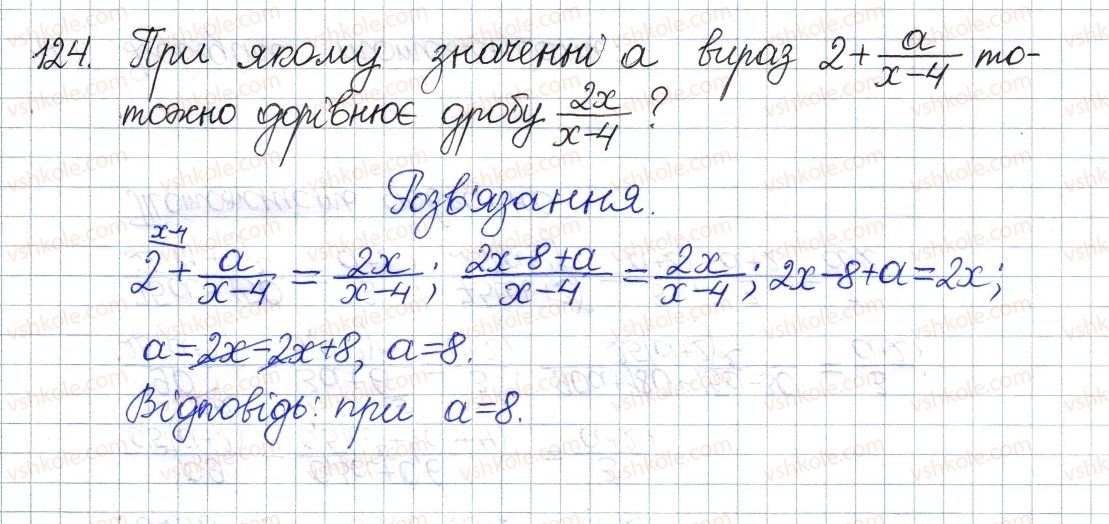 124. При якому значенні a вираз 2 + a/(x-4) то-
тожно дорівнює дробу 2x/(x-4) ?
Розв'язання.
x-4
2 + a/(x-4) = 2x/(x-4); (2x-8+a)/(x-4) = 2x/(x-4); 2x-8+a=2x;
a=2x-2x+8, a=8.
Відповідь: при a=8.